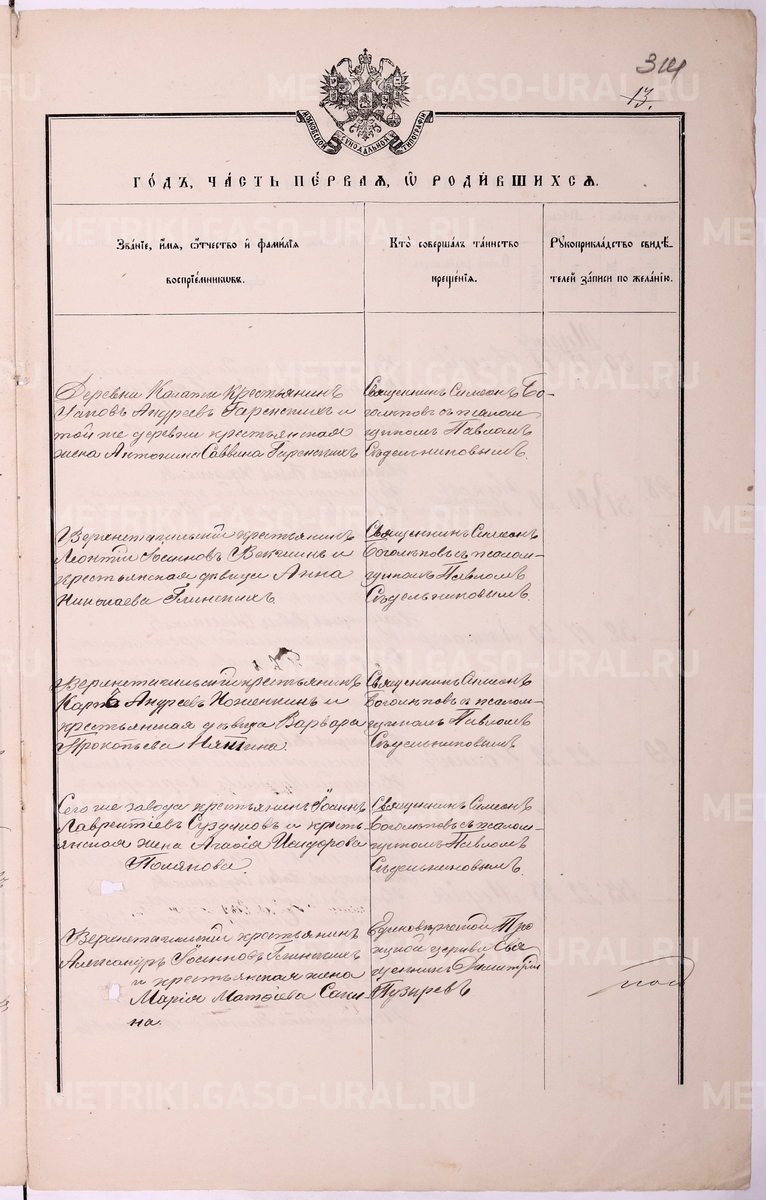 314
13.
МОСКОВСКОЙ СѴНОДАЛЬНОЙ ТИПОГРАФІИ
ГО́ДЪ, ЧА́СТЬ ПЕ́РВАЯ, Ѡ҆ РОДИ́ВШИХСЯ.
Зва́нїе, и҆́мя, ѻ҆́тчество и҆ фами́лїя
воспрїе́мникѡвъ.
Кто̀ соверша́лъ та́инство
креще́нїя.
Рꙋкоприкла́дство свидѣ́-
телей за́писи по жела́нїю.
Деревни Крестьянинъ
Андреевъ Гаренскихъ и
той же деревни крестьянская
жена Антонина Саввина Гаренскихъ
Священникъ Симеонъ Бо-
голюбовъ съ псалом-
щикомъ Павломъ
Сѣдельниковымъ.
Верхнетагильскій крестьянинъ
Леонтій Іоанновъ и
крестьянская дѣвица Анна
Николаева Глинскихъ.
Священникъ Симеонъ
Боголюбовъ съ псалом-
щикомъ Павломъ
Сѣдельниковымъ.
Верхнетагильскій крестьянинъ
Карпъ Андреевъ Ноженкинъ и
крестьянская дѣвица Варвара
Прокопьева
Священникъ Симеонъ
Боголюбовъ съ псалом-
щикомъ Павломъ
Сѣдельниковымъ
Сего же завода крестьянинъ Іоаннъ
Лаврентіевъ и кресть-
янская жена Агаѳія Исидорова
Полякова.
Священникъ Симеонъ
Боголюбовъ съ псалом-
щикомъ Павломъ
Сѣдельниковымъ.
Верхнетагильскій крестьянинъ
Александръ Іоанновъ Глинскихъ
и крестьянская жена
Марія Матѳіева Саки-
на.
Единовѣрческой Тро-
ицкой церкви Свя-
щенникъ Димитрій
Пузыревъ
METRIKI.GASO-URAL.RU